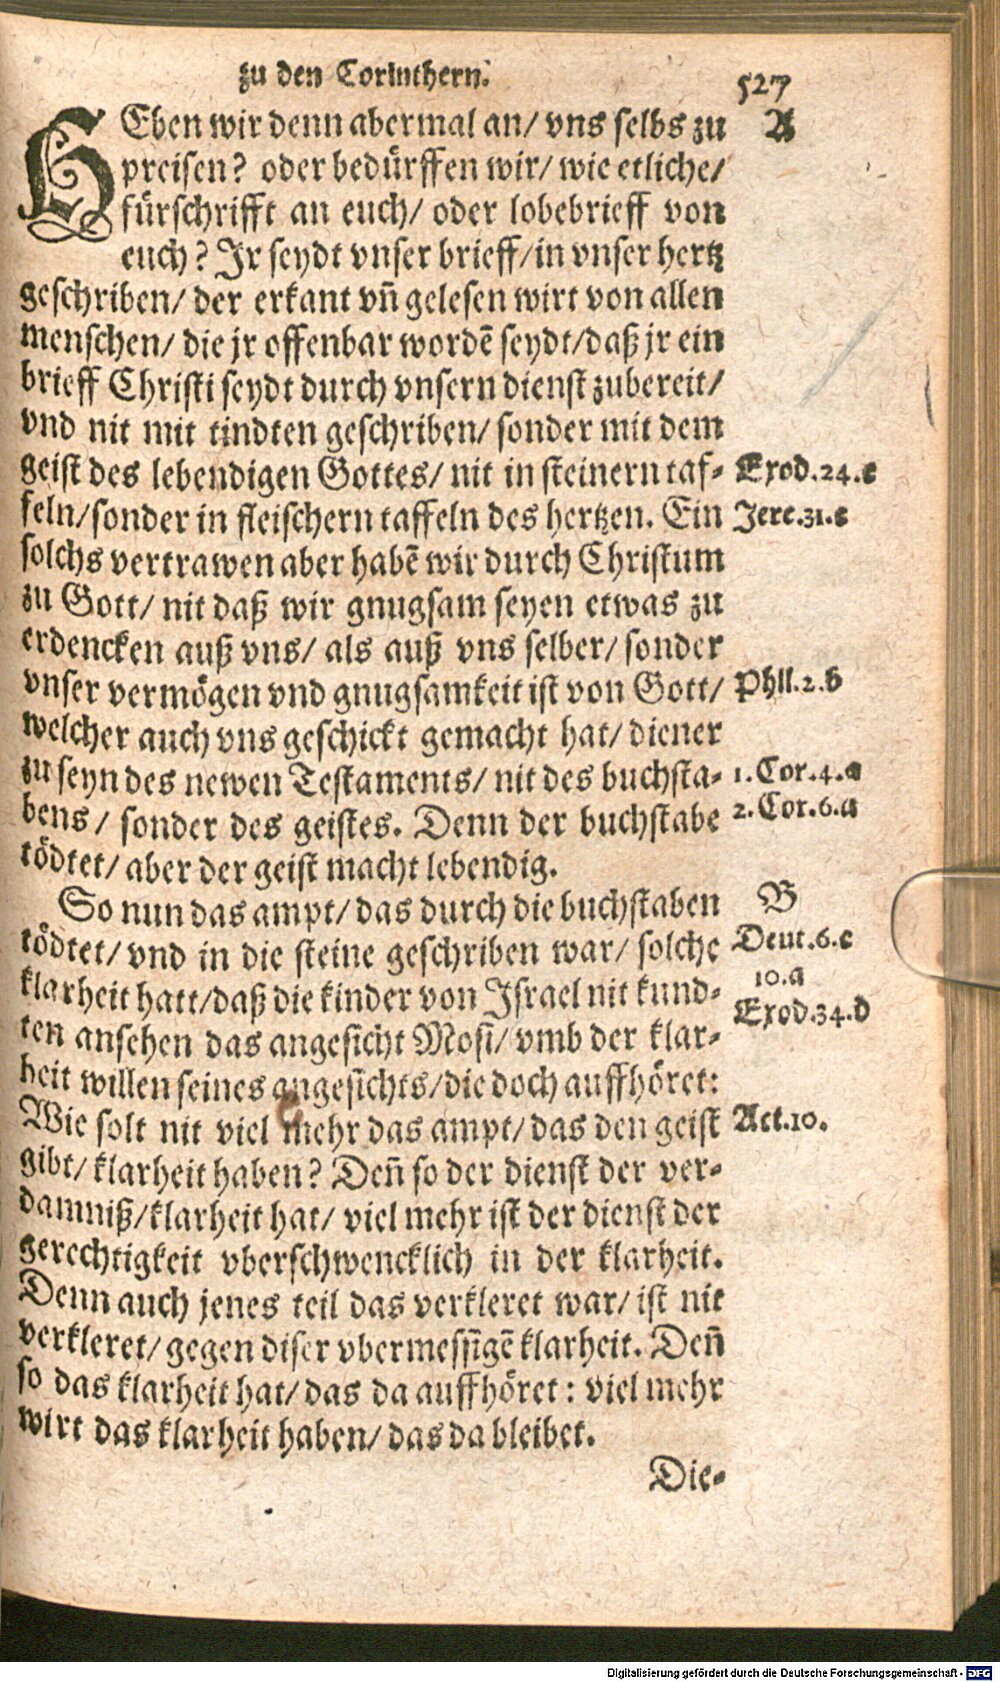 zu den Corinthern.
527
HEben wir denn abermal an/ vns selbs zu
A
preisen? oder bedürffen wir/ wie etliche/
fürschrifft an euch/ oder lobebrieff von
euch? Jr seydt vnser brieff/in vnser hertz
geschriben/ der erkant vñ gelesen wirt von allen
menschen/ die jr offenbar wordẽ seydt/daß jr ein
brieff Christi seydt durch vnsern dienst zubereit/
vnd nit mit tindten geschriben/ sonder mit dem
geist des lebendigen Gottes/ nit in steinern taf-
Exod.24.c
feln/sonder in fleischern taffeln des hertzen. Ein
Jere.31.e
solchs vertrawen aber habẽ wir durch Christum
zu Gott/ nit daß wir gnugsam seyen etwas zu
erdencken auß vns/ als auß vns selber/ sonder
vnser vermögen vnd gnugsamkeit ist von Gott/
Phil.2.b
welcher auch vns geschickt gemacht hat/ diener
zu seyn des newen Testaments/ nit des buchsta-
1.Cor.4.a
bens/ sonder des geistes. Denn der buchstabe
2.Cor.6.a
tödtet/ aber der geist macht lebendig.
So nun das ampt/ das durch die buchstaben
B
tödtet/ vnd in die steine geschriben war/ solche
Deut.6.c
klarheit hatt/daß die kinder von Israel nit kund-
10.a
Exod.34.d
ten ansehen das angesicht Mosi/ vmb der klar-
heit willen seines angesichts/die doch auffhöret:
Wie solt nit viel mehr das ampt/ das den geist
Act.10.
gibt/ klarheit haben? Deñ so der dienst der ver-
damniß/klarheit hat/ viel mehr ist der dienst der
gerechtigkeit vberschwencklich in der klarheit.
Denn auch jenes teil das verkleret war/ ist nit
verkleret/ gegen diser vbermessigẽ klarheit. Deñ
so das klarheit hat/ das da auffhöret: viel mehr
wirt das klarheit haben/ das da bleibet.
Die-
Digitalisierung gefördert durch die Deutsche Forschungsgemeinschaft - DFG